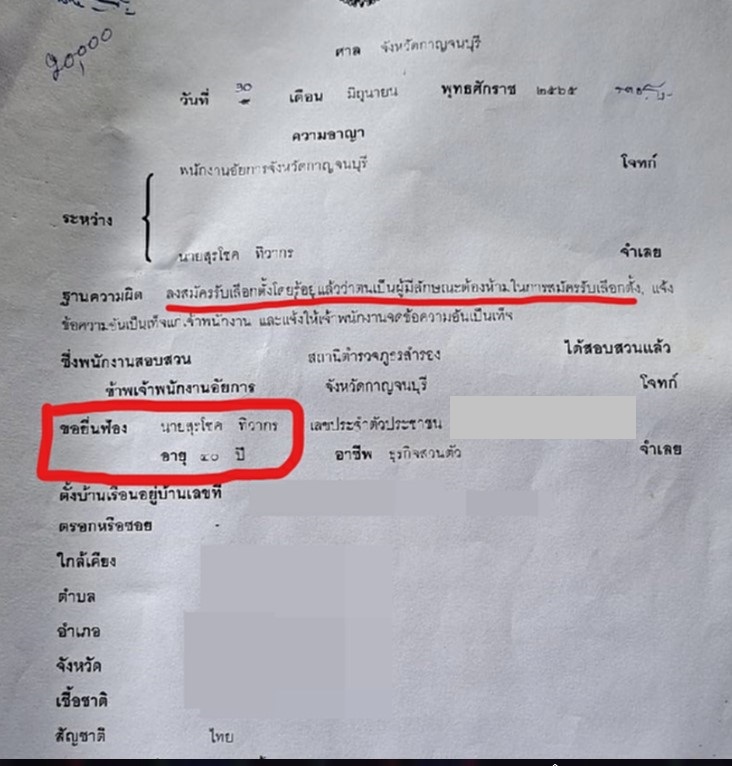 ๒๐,๐๐๐
ศาล จังหวัดกาญจนบุรี
วันที่ ๓๐ เดือน มิถุนายน พุทธศักราช ๒๕๖๕
ความอาญา
พนักงานอัยการจังหวัดกาญจนบุรี โจทก์
ระหว่าง
นายสุรโชค ทิวากร จำเลย
ฐานความผิด ลงสมัครรับเลือกตั้งโดยรู้อยู่แล้วว่าตนเป็นผู้มีลักษณะต้องห้ามในการสมัครรับเลือกตั้ง, แจ้ง
ข้อความอันเป็นเท็จแก่เจ้าพนักงาน และแจ้งให้เจ้าพนักงานจดข้อความอันเป็นเท็จ
ซึ่งพนักงานสอบสวน สถานีตำรวจภูธรสำรอง ได้สอบสวนแล้ว
ข้าพเจ้าพนักงานอัยการ จังหวัดกาญจนบุรี โจทก์
ขอยื่นฟ้อง นายสุรโชค ทิวากร เลขประจำตัวประชาชน
อายุ ๔๐ ปี อาชีพ ธุรกิจส่วนตัว จำเลย
ตั้งบ้านเรือนอยู่บ้านเลขที่
ตรอกหรือซอย -
ใกล้เคียง
ตำบล
อำเภอ
จังหวัด
เชื้อชาติ
สัญชาติ ไทย